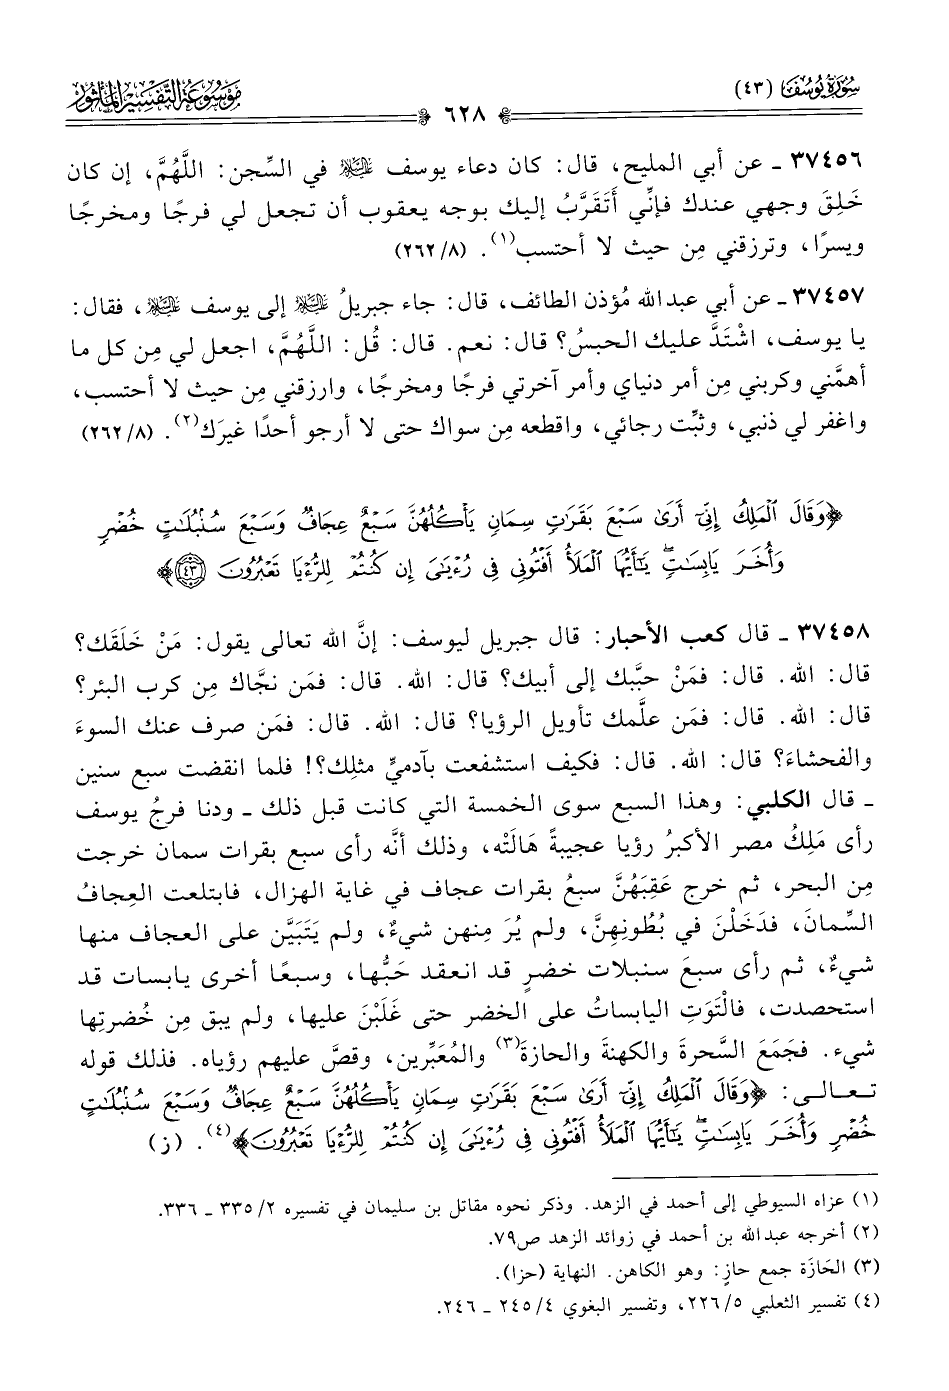 سورة يوسف (٤٣)
٦٢٨
موسوعة التفسير المأثور
٣٧٤٥٦ ـ عن أبي المليح، قال: كان دعاء يوسف ﵇ في السِّجن: اللَّهُمَّ، إن كان
خَلِقَ وجهي عندك فإنِّي أَتَقَرَّبُ إليك بوجه يعقوب أن تجعل لي فرجًا ومخرجًا
ويسرًا، وترزقني مِن حيث لا أحتسب(١). (٢٦٢/٨)
٣٧٤٥٧ ـ عن أبي عبد الله مُؤذن الطائف، قال: جاء جبريلُ ﵇ إلى يوسف ﵇، فقال:
يا يوسف، اشْتَدَّ عليك الحبسُ؟ قال: نعم. قال: قُل: اللَّهُمَّ، اجعل لي مِن كل ما
أهمَّني وكربني مِن أمر دنياي وأمر آخرتي فرجًا ومخرجًا، وارزقني مِن حيث لا أحتسب،
واغفر لي ذنبي، وثبِّت رجائي، واقطعه مِن سواك حتى لا أرجو أحدًا غيرَك(٢). (٢٦٢/٨)
﴿وَقَالَ ٱلْمَلِكُ إِنِّىٓ أَرَىٰ سَبْعَ بَقَرَٰتٍ سِمَانٍ يَأْكُلُهُنَّ سَبْعٌ عِجَافٌ وَسَبْعَ سُنۢبُلَٰتٍ خُضْرٍ
وَأُخَرَ يَابِسَٰتٍ ۖ يَٰٓأَيُّهَا ٱلْمَلَأُ أَفْتُونِى فِى رُءْيَٰىَ إِن كُنتُمْ لِلرُّءْيَا تَعْبُرُونَ ٤٣﴾
٣٧٤٥٨ ـ قال كعب الأحبار: قال جبريل ليوسف: إنَّ الله تعالى يقول: مَنْ خَلَقَك؟
قال: الله. قال: فمَنْ حبَّبك إلى أبيك؟ قال: الله. قال: فمَن نجَّاك مِن كرب البئر؟
قال: الله. قال: فمَن علَّمك تأويل الرؤيا؟ قال: الله. قال: فمَن صرف عنك السوءَ
والفحشاءَ؟ قال: الله. قال: فكيف استشفعت بآدميٍّ مثلِك؟! فلما انقضت سبع سنين
ـ قال الكلبي: وهذا السبع سوى الخمسة التي كانت قبل ذلك ـ ودنا فرجُ يوسف
رأى مَلِكُ مصر الأكبرُ رؤيا عجيبةً هَالَتْه، وذلك أنَّه رأى سبع بقرات سمان خرجت
مِن البحر، ثم خرج عَقِبَهُنَّ سبعُ بقرات عجاف في غاية الهزال، فابتلعت العِجافُ
السِّمانَ، فدَخَلْنَ في بُطُونِهِنَّ، ولم يُرَ مِنهن شيءٌ، ولم يَتَبَيَّن على العجاف منها
شيءٌ، ثم رأى سبعَ سنبلات خضرٍ قد انعقد حَبُّها، وسبعًا أخرى يابسات قد
استحصدت، فالْتَوَتِ اليابساتُ على الخضر حتى غَلَبْنَ عليها، ولم يبق مِن خُضرتِها
شيء. فجَمَعَ السَّحرةَ والكهنةَ والحازةَ(٣) والمُعَبِّرين، وقصَّ عليهم رؤياه. فذلك قوله
تعالى: ﴿وَقَالَ ٱلْمَلِكُ إِنِّىٓ أَرَىٰ سَبْعَ بَقَرَٰتٍ سِمَانٍ يَأْكُلُهُنَّ سَبْعٌ عِجَافٌ وَسَبْعَ سُنۢبُلَٰتٍ
خُضْرٍ وَأُخَرَ يَابِسَٰتٍ ۖ يَٰٓأَيُّهَا ٱلْمَلَأُ أَفْتُونِى فِى رُءْيَٰىَ إِن كُنتُمْ لِلرُّءْيَا تَعْبُرُونَ﴾(٤). (ز)
(١) عزاه السيوطي إلى أحمد في الزهد. وذكر نحوه مقاتل بن سليمان في تفسيره ٣٣٥/٢ ـ ٣٣٦.
(٢) أخرجه عبد الله بن أحمد في زوائد الزهد ص٧٩.
(٣) الحَازَة جمع حازٍ: وهو الكاهن. النهاية (حزا).
(٤) تفسير الثعلبي ٢٢٦/٥، وتفسير البغوي ٢٤٥/٤ ـ ٢٤٦.